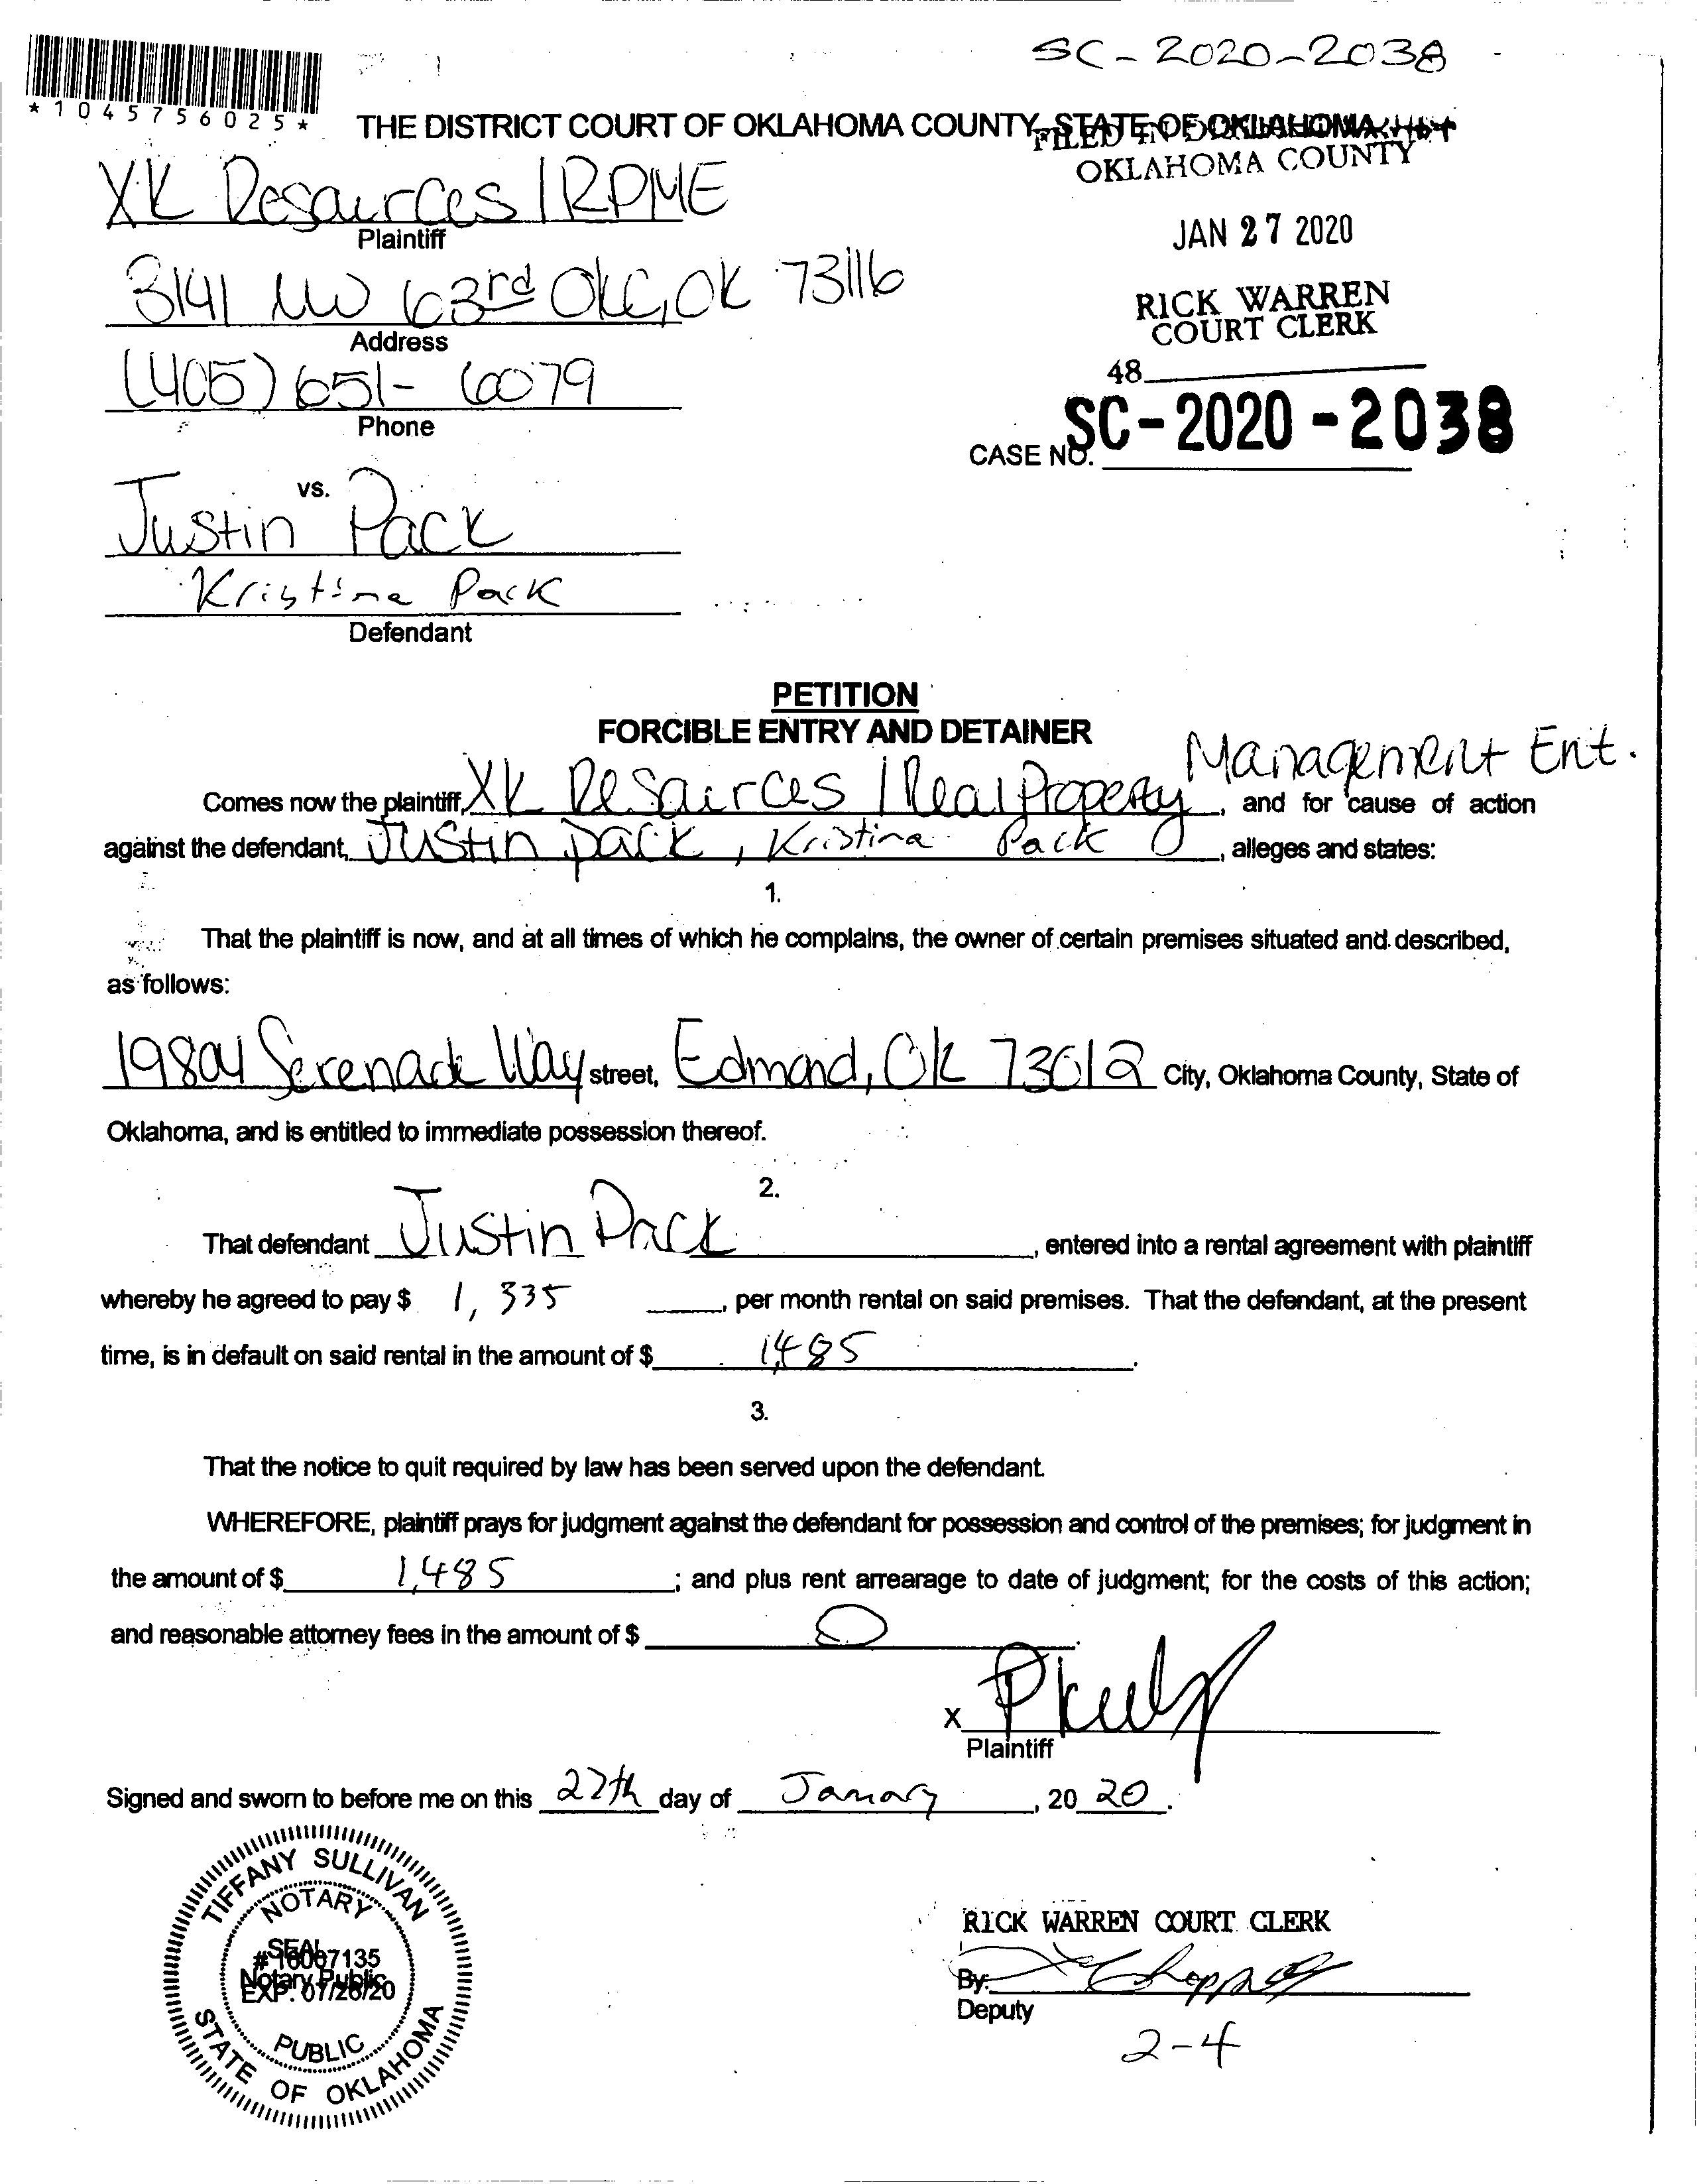 SC-2020-2038
*1045756025*
THE DISTRICT COURT OF OKLAHOMA COUNTY, STATE OF OKLAHOMA
FILED IN DISTRICT COURT
OKLAHOMA COUNTY
XK Resources / RPME
Plaintiff
JAN 27 2020
3141 NW 63rd OKC, OK 73116
Address
RICK WARREN
COURT CLERK
(405) 651-6079
Phone
48
CASE NO. SC-2020-2038
vs.
Justin Pack
Kristina Pack
Defendant
PETITION
FORCIBLE ENTRY AND DETAINER
Comes now the plaintiff, XK Resources / Real Property Management Ent. , and for cause of action
against the defendant, Justin Pack, Kristina Pack , alleges and states:
1.
That the plaintiff is now, and at all times of which he complains, the owner of certain premises situated and described,
as follows:
19804 Serenade Way street, Edmond, OK 73012 City, Oklahoma County, State of
Oklahoma, and is entitled to immediate possession thereof.
2.
That defendant Justin Pack , entered into a rental agreement with plaintiff
whereby he agreed to pay $ 1,335 , per month rental on said premises. That the defendant, at the present
time, is in default on said rental in the amount of $ 1,485 .
3.
That the notice to quit required by law has been served upon the defendant.
WHEREFORE, plaintiff prays for judgment against the defendant for possession and control of the premises; for judgment in
the amount of $ 1,485 ; and plus rent arrearage to date of judgment; for the costs of this action;
and reasonable attorney fees in the amount of $ 0 .
X
Plaintiff
Signed and sworn to before me on this 27th day of January , 20 20 .
TIFFANY SULLIVAN
NOTARY
SEAL
#16007135
Notary Public
EXP. 07/26/20
PUBLIC
STATE OF OKLAHOMA
RICK WARREN COURT CLERK
By:
Deputy
2-4